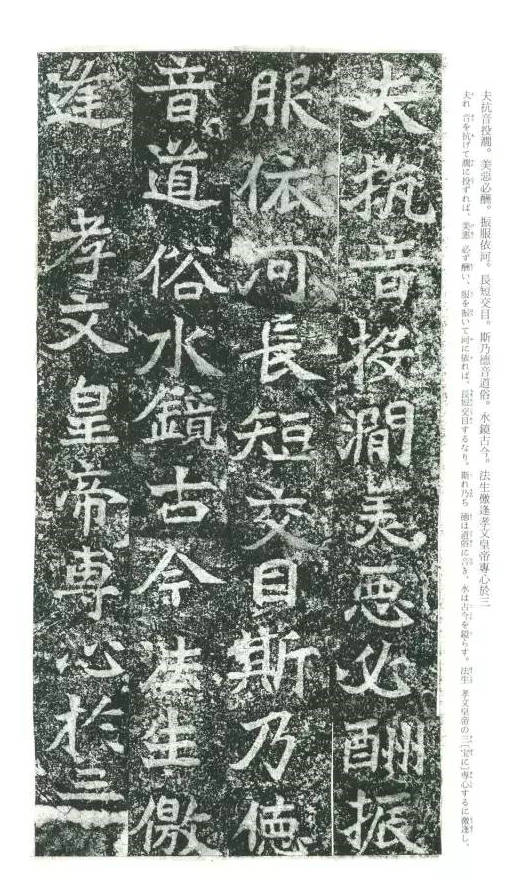 夫抗音投澗。美惡必酬。振服依河。長短交目。斯乃德音道俗。水鏡古今。法生儌逢孝文皇帝專心於三
夫れ 音を抗げて澗に投ずれば、美惡 必ず酬い、服を振いて河に依れば、長短交目するなり。斯れ乃ち 徳は道俗に音き、水は古今を鏡らす。法生 孝文皇帝の三[宝に]専心するに儌逢し、
夫抗音投澗美惡必酬振
服依河長短交目斯乃德
音道俗水鏡古今法生儌
逢孝文皇帝專心於三